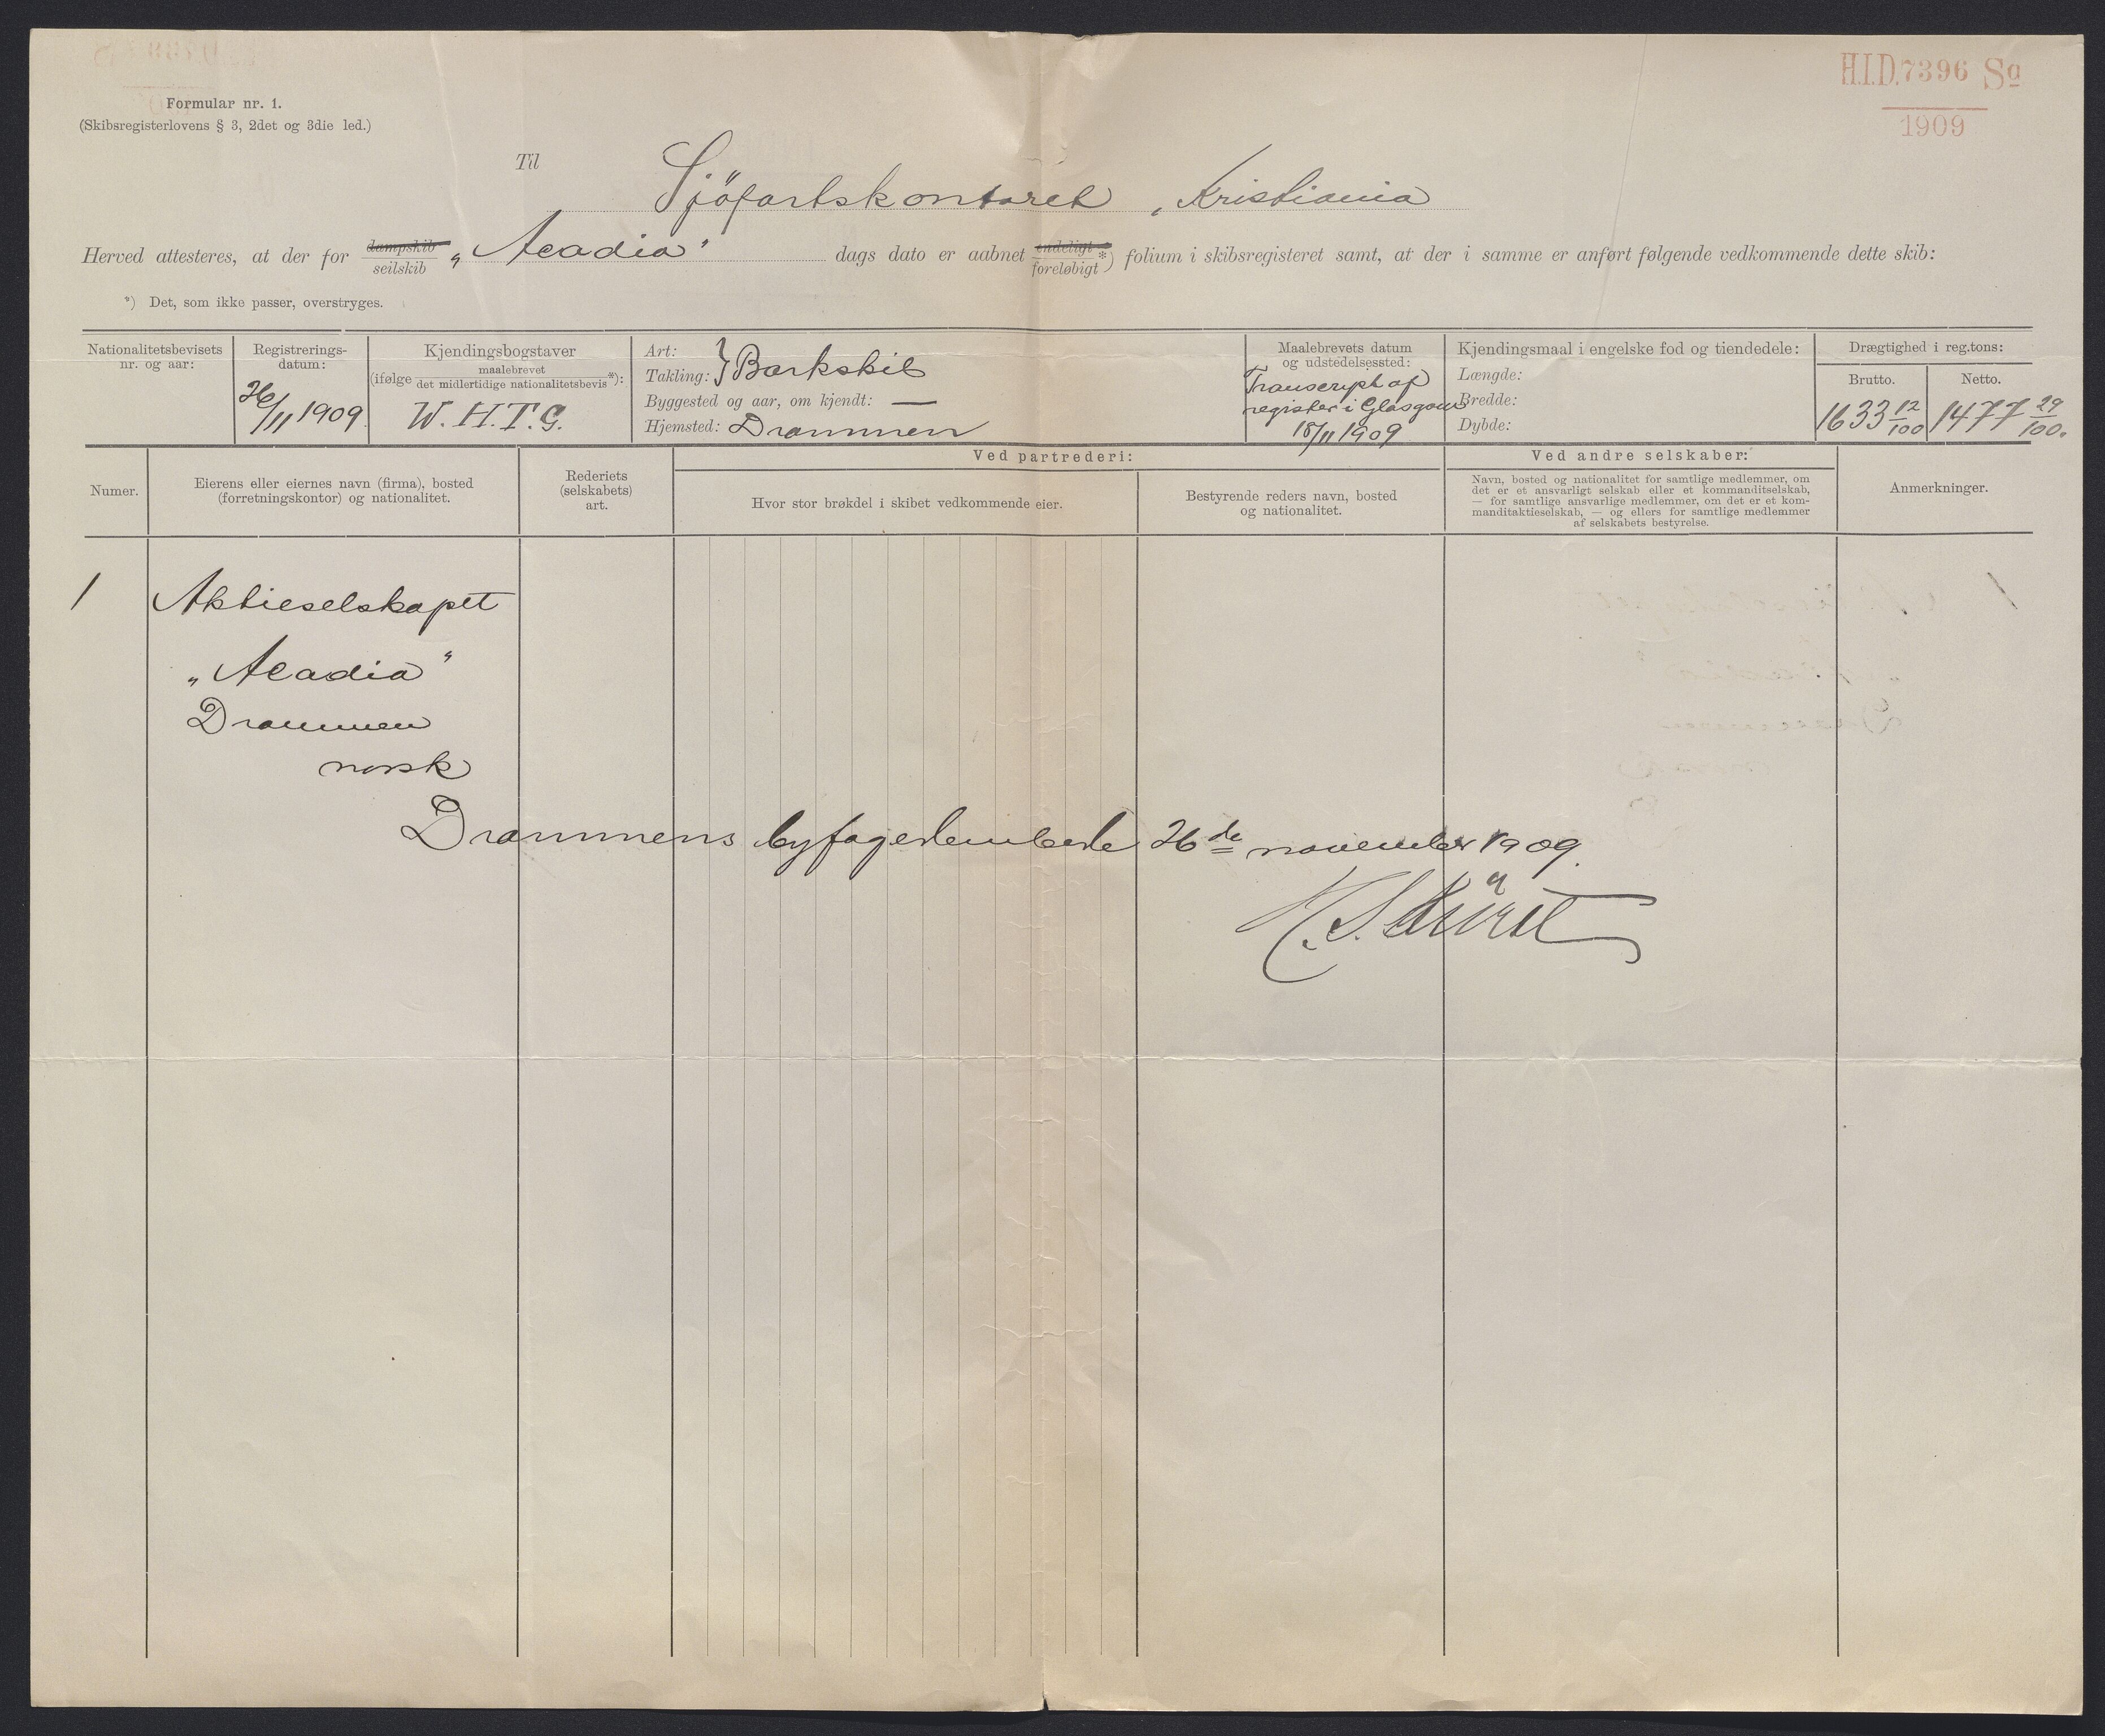 H.I.D. 7396 Sø
1909
Formular nr. 1.
(Skibsregisterlovens § 3, 2det og 3die led.)
Til Sjöfartskontoret, Kristiania
Herved attesteres, at der for dampskib seilskib „Acadia" dags dato er aabnet endeligt foreløbigt *) folium i skibsregisteret samt, at der i samme er anført følgende vedkommende dette skib:
*) Det, som ikke passer, overstryges.
Nationalitetsbevisets
nr. og aar:
Registrerings-
datum:
26/11 1909.
Kjendingsbogstaver
(ifølge maalebrevet det midlertidige nationalitetsbevis *):
W. H. T. G.
Art:
Takling: } Barkskib
Byggested og aar, om kjendt: —
Hjemsted: Drammen
Maalebrevets datum
og udstedelsessted:
Transcript af
register i Glasgow
18/11 1909
Kjendingsmaal i engelske fod og tiendedele:
Længde:
Bredde:
Dybde:
Drægtighed i reg.tons:
Brutto.
1633 12/100
Netto.
1477 29/100.
Numer.
Eierens eller eiernes navn (firma), bosted
(forretningskontor) og nationalitet.
Rederiets
(selskabets)
art.
Ved partrederi:
Hvor stor brøkdel i skibet vedkommende eier.
Bestyrende reders navn, bosted
og nationalitet.
Ved andre selskaber:
Navn, bosted og nationalitet for samtlige medlemmer, om
det er et ansvarligt selskab eller et kommanditselskab,
— for samtlige ansvarlige medlemmer, om det er et kom-
manditaktieselskab, — og ellers for samtlige medlemmer
af selskabets bestyrelse.
Anmerkninger.
1 Aktieselskapet
„Acadia"
Drammen
norsk
Drammens byfogedembede 26de november 1909.